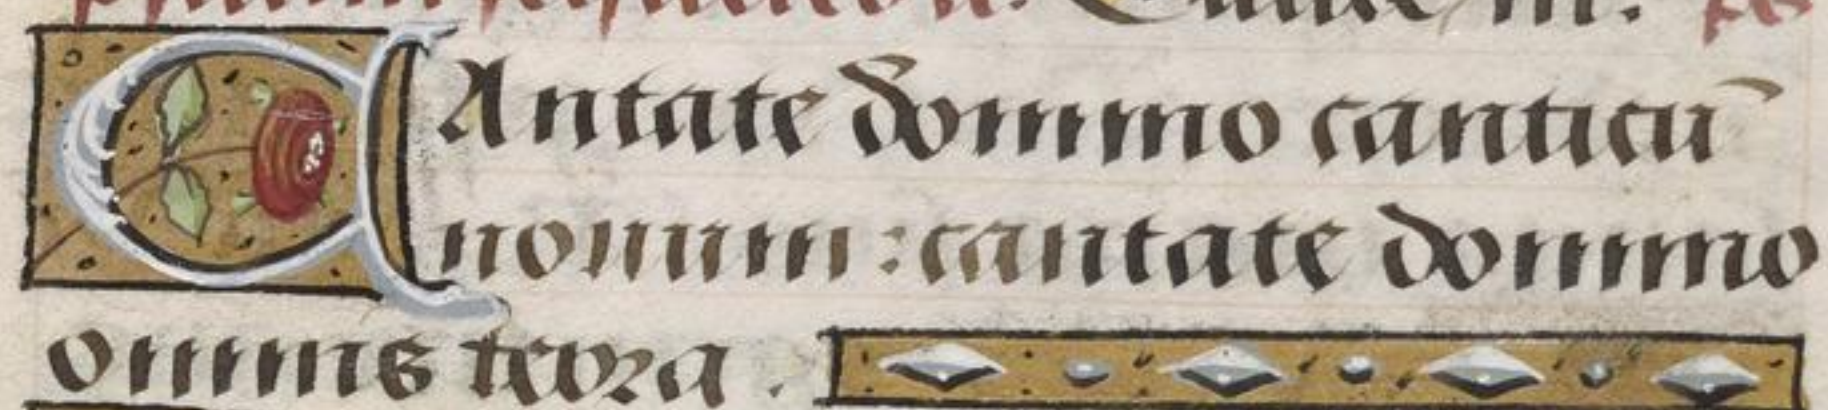 CAntate domino canticū
nouum : cantate domino
omnis terra .